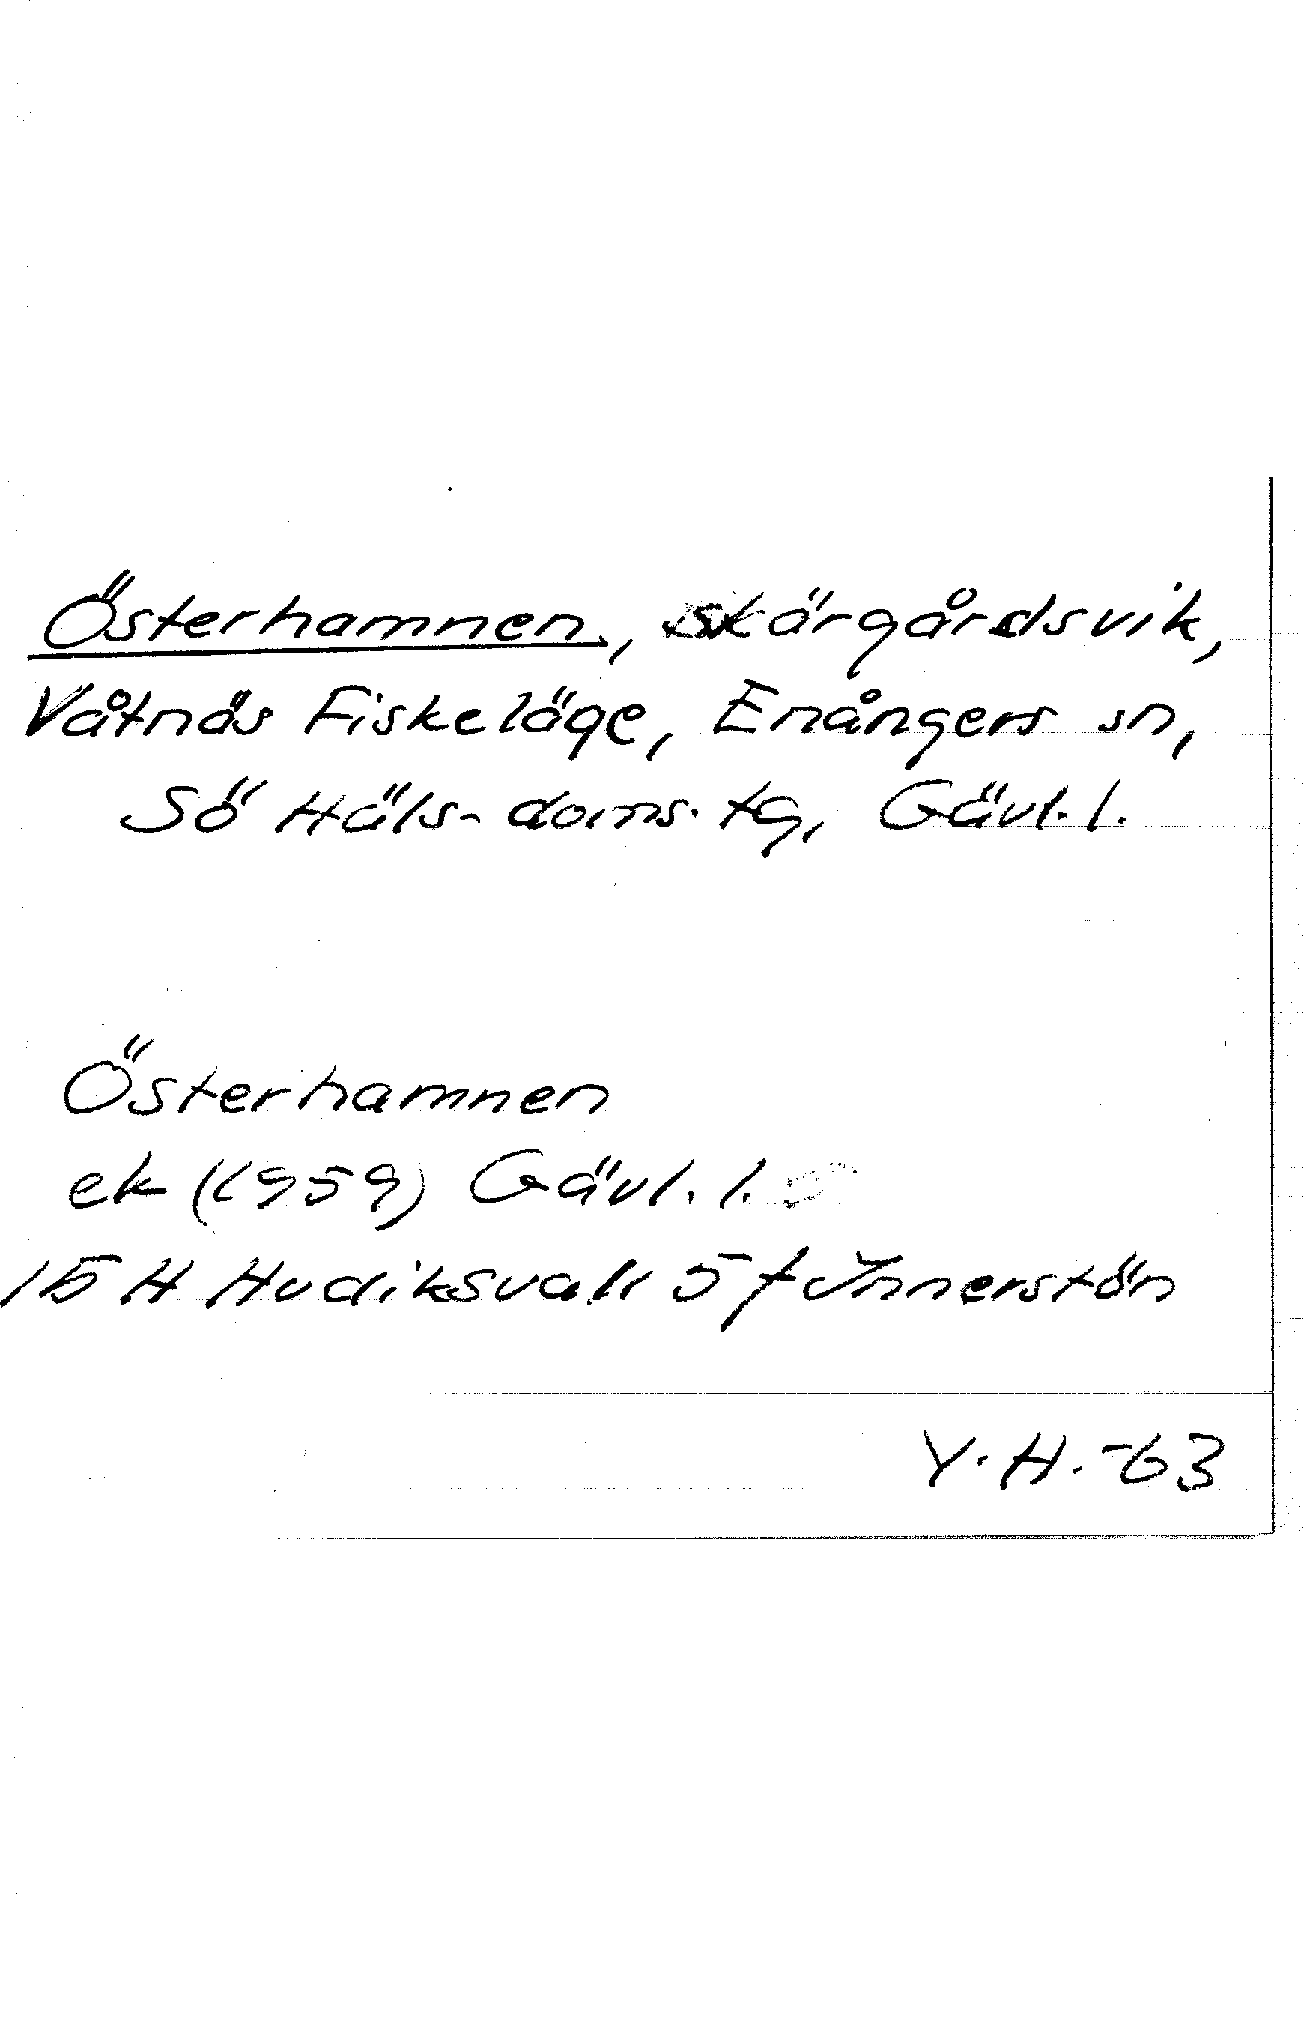 Österhamnen, skärgårdsvik,
Våtnäs Fiskeläge, Enångers sn,
Sö Häls. doms. tg, Gävl. l.
Österhamnen
ek (1959) Gävl. l.
15 H Hudiksvall 5 f Innerstön
Y. H. -63